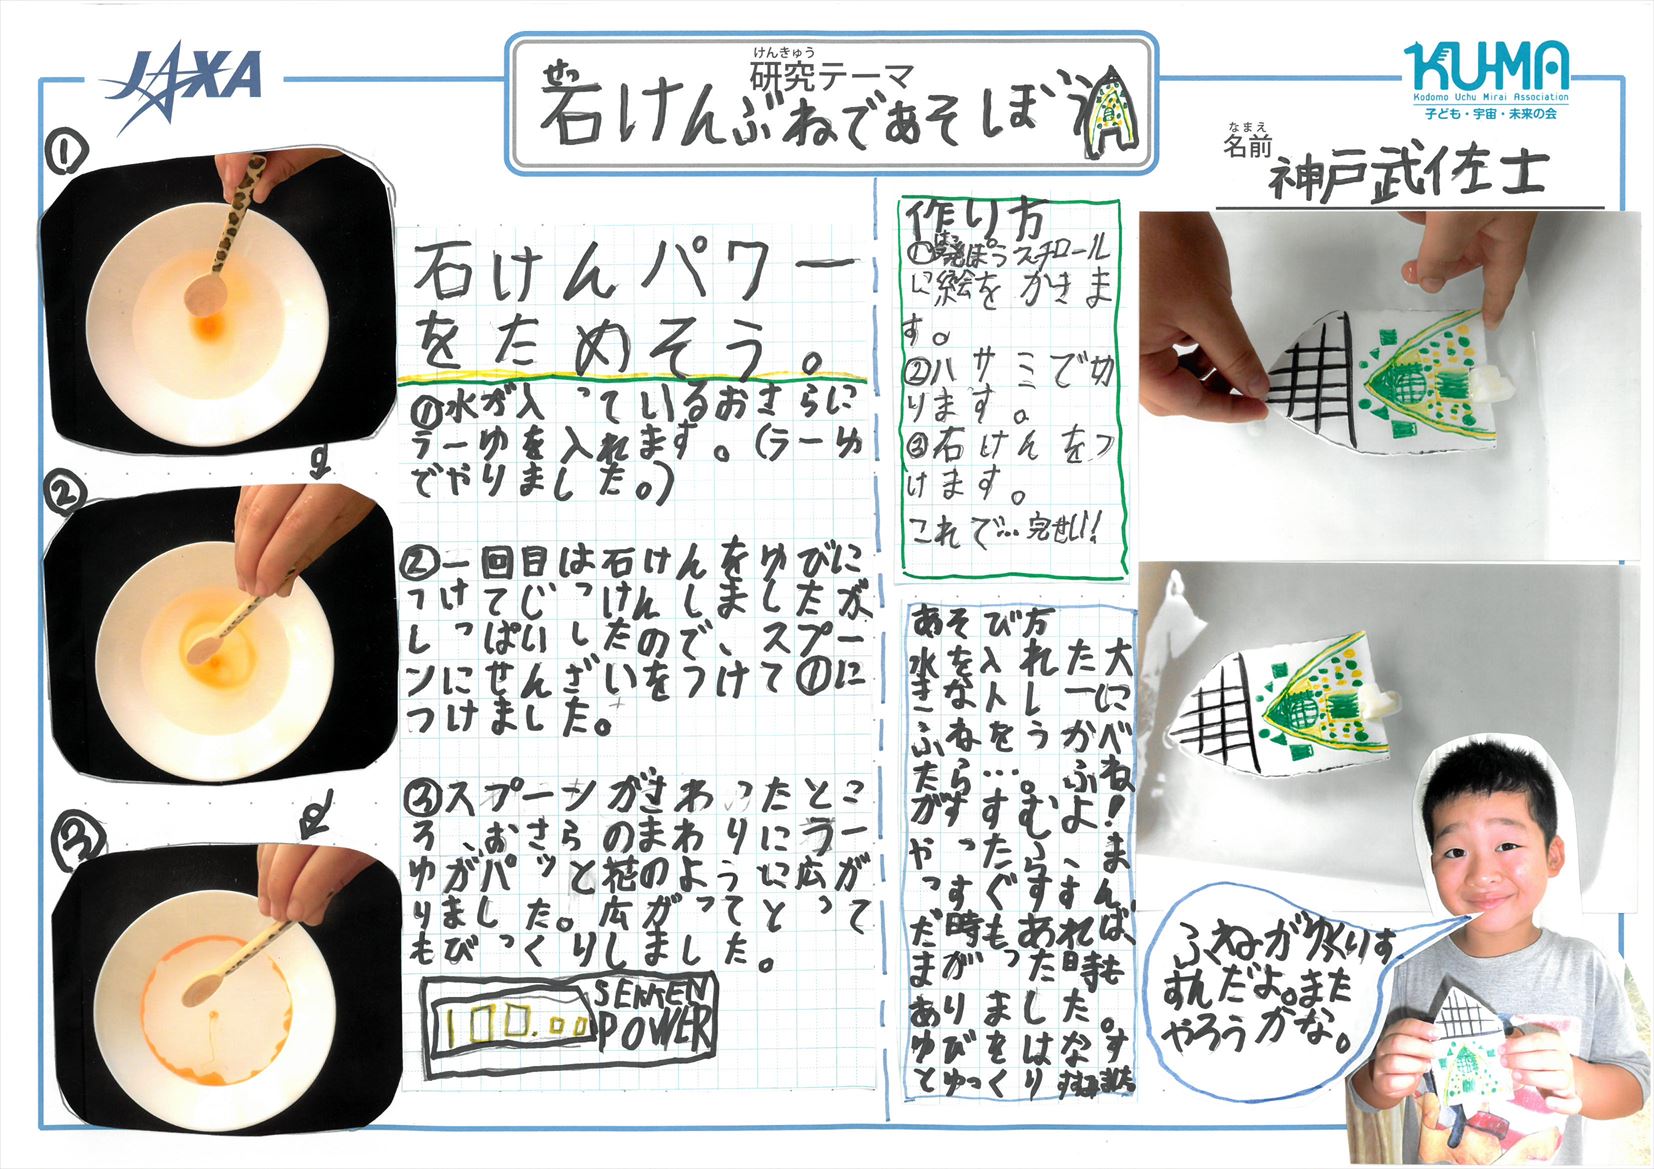 JAXA
けんきゅう
研究テーマ
せっ
石けんぶねであそぼう
KU-MA
Kodomo Uchu Mirai Association
子ども・宇宙・未来の会
なまえ
名前
神戸武佐士
①
②
③
石けんパワー
をためそう。
①水が入っているおさらに
ラーゆを入れます。(ラーゆ
でやりました。)
②一回目は石けんをゆびに
つけてじっけんしましたが
しっぱいしたので、スプー
ンにせんざいをつけて①に
つけました。
③スプーンがさわったとこ
ろ、おさらのまわりにラー
ゆがパッと花のように広が
りました。広がってとって
もびっくりしました。
SEKKEN
POWER
作り方
はっ
①発ぽうスチロール
に絵をかきま
す。
②ハサミで切
ります。
③石けんをつ
けます。
これで…完せい!
あそび方
水を入れた大
きな入し一に
ふねをうかべ
たら…。ふね
がすすむよ!
やったら、ま
っすぐすすん
だ時もあれば、
まがった時も
ありました。
ゆびをはなす
とゆっくりすすみました
ふねがゆっくりす
すんだよ。また
やろうかな。